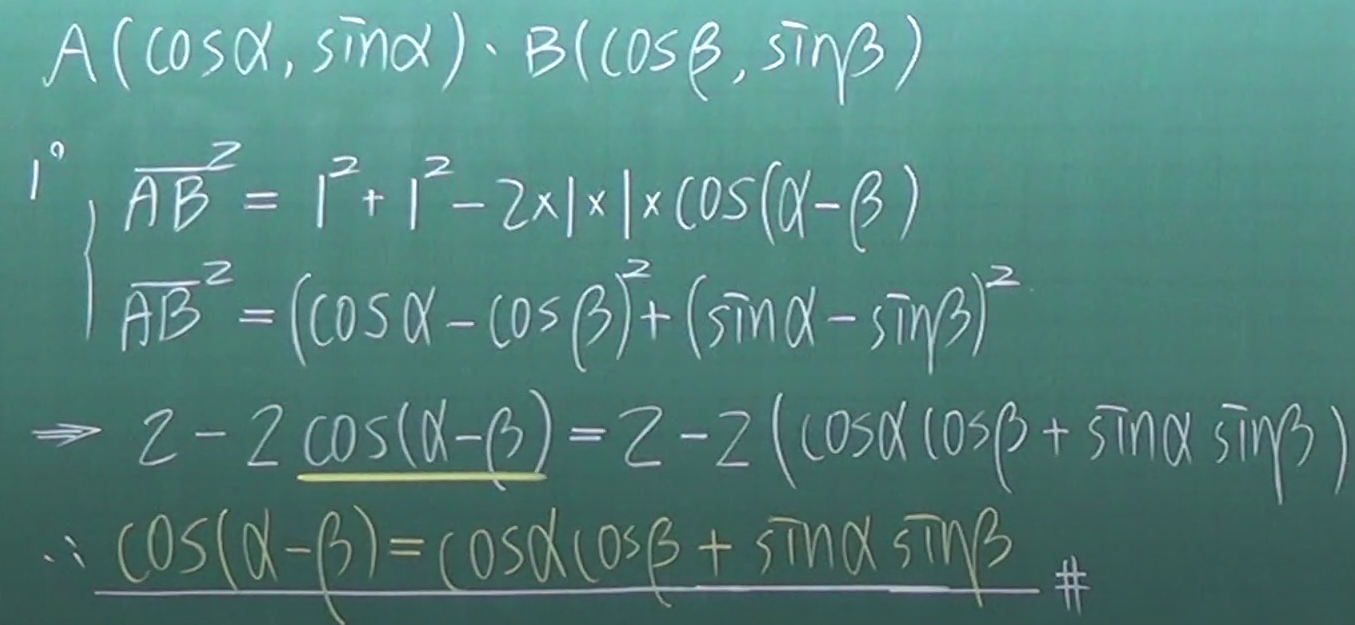 A(cosα, sinα)、B(cosβ, sinβ)
1° { \overline{AB}² = 1² + 1² − 2×1×1×cos(α−β)
\overline{AB}² = (cosα − cosβ)² + (sinα − sinβ)²
⇒ 2 − 2cos(α−β) = 2 − 2(cosα cosβ + sinα sinβ)
∴ cos(α−β) = cosα cosβ + sinα sinβ #